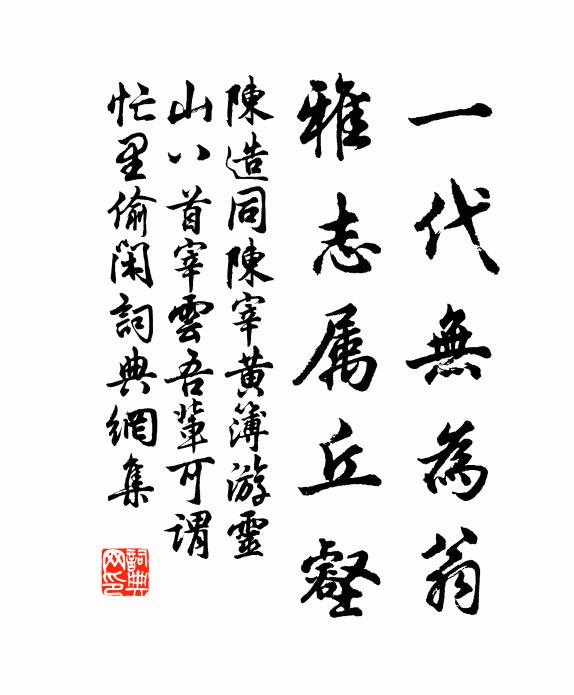 一代無為翁
雅志属丘壑
陳造同陳宰黄簿游靈
山八首宰雲吾輩可謂
忙里偷閑詞典網集
詞典网印